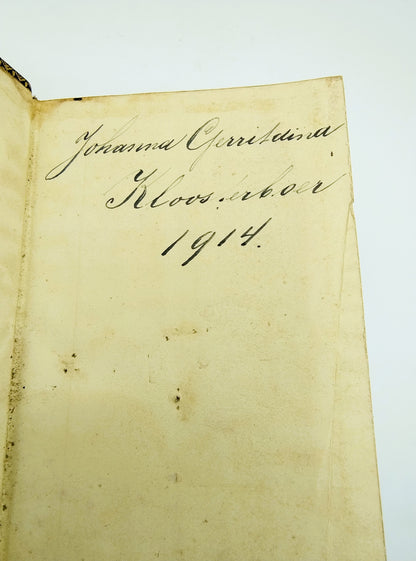 Johanna Gerritdina
Kloosterboer
1914.